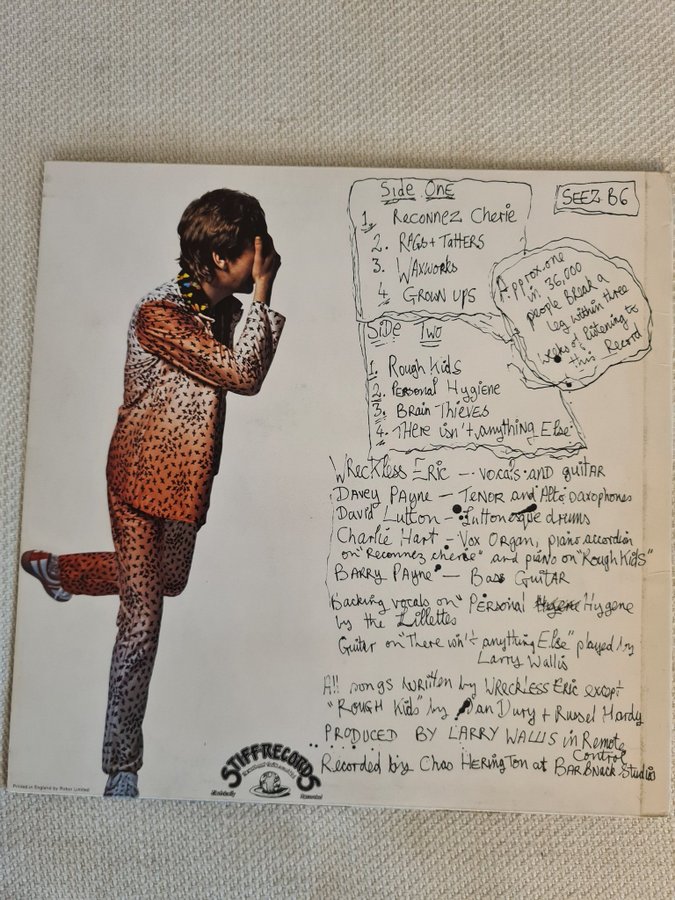 Side One
1. Reconnez Cherie
2. Rags + Tatters
3. Waxworks
4. Grown ups
SEEZ B6
Approx. one
in 36,000
people break a
leg within three
weeks of listening to
this Record
Side Two
1. Rough Kids
2. Personal Hygiene
3. Brain Thieves
4. There isn't anything Else
Wreckless Eric - vocals and guitar
Davey Payne - Tenor and Alto Saxophones
David Lutton - Luttonesque drums
Charlie Hart - Vox Organ, piano accordion
on "Reconnez cherie" and piano on "Rough Kids"
Barry Payne - Bass Guitar
Backing vocals on "Personal Hygene
by the Lillettes
Guitar on "There isn't anything Else" played by
Larry Wallis
All songs written by Wreckless Eric except
"Rough Kids" by Ian Dury + Russel Hardy
PRODUCED BY LARRY WALLIS in Remote
Control
Recorded by Chao Herington at Barbnack Studio
STIFF RECORDS
Printed in England by Robor Limited